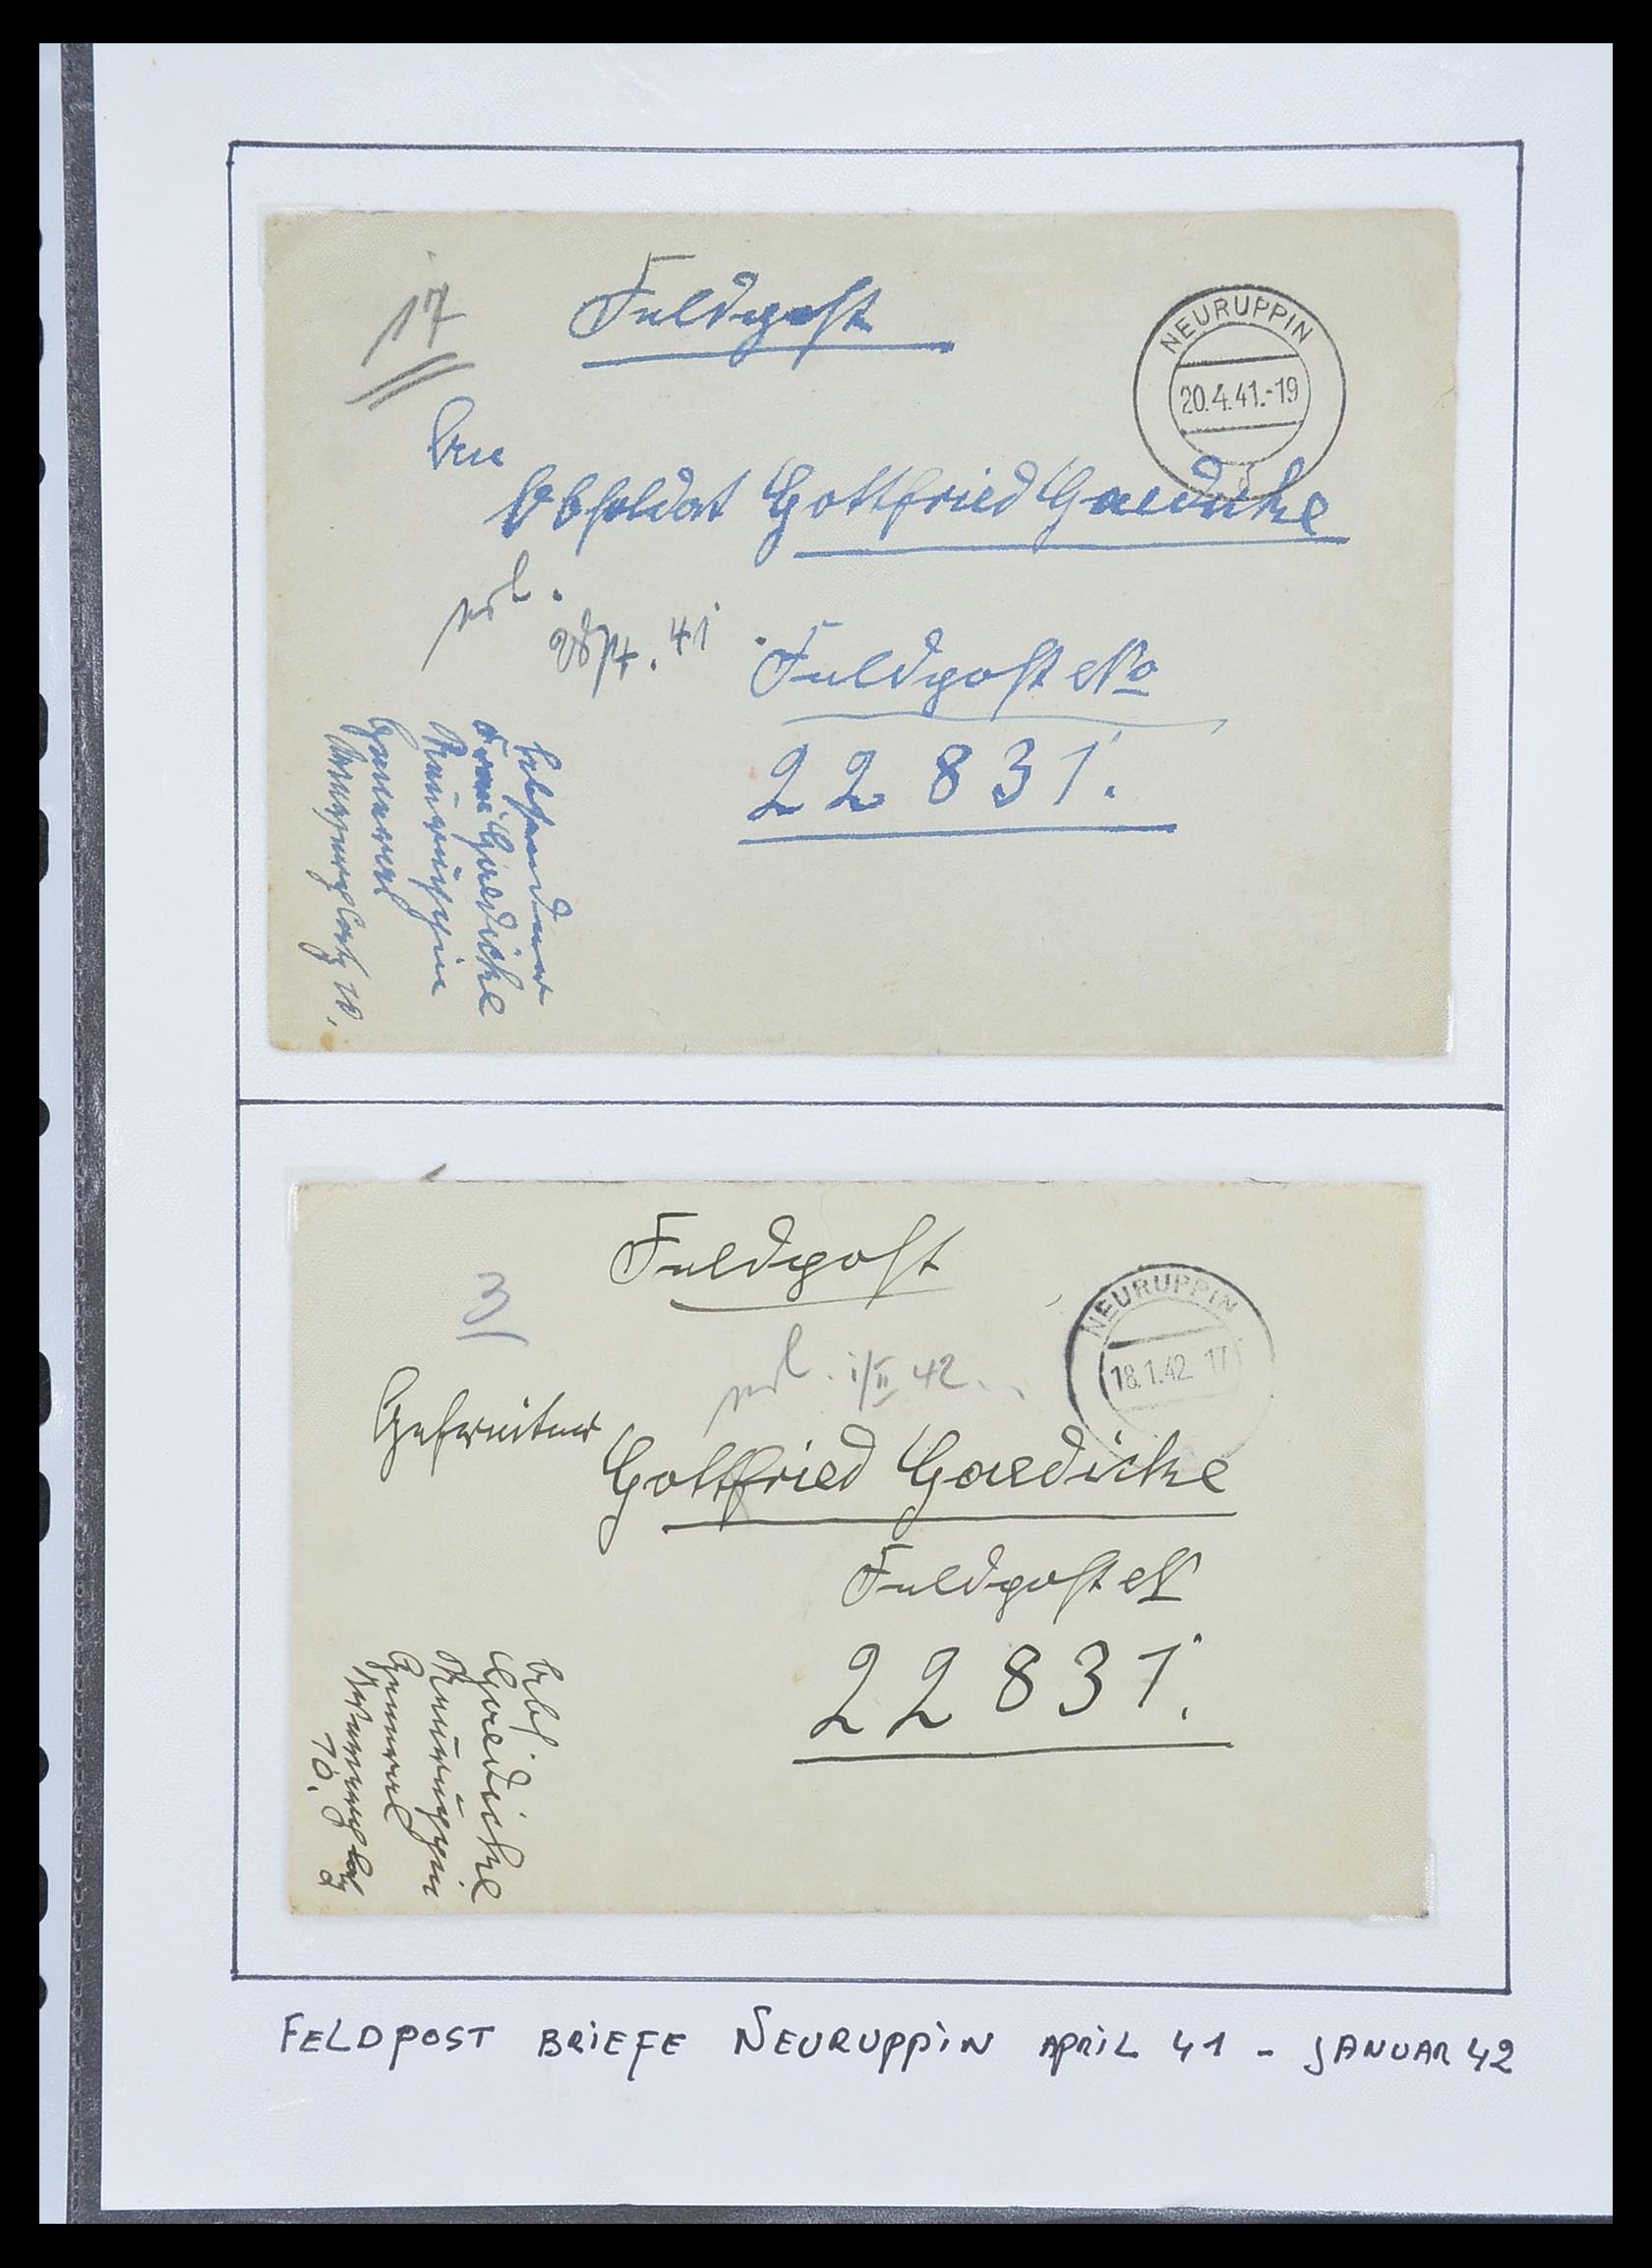 17
Feldpost
NEURUPPIN
20.4.41.-19
An
Obsoldat Gottfried Gaedicke
Feldpost No
22831.
Absender
Gaedicke
Neuruppin
General
10.
Feldpost
3
NEURUPPIN
18.1.42. 17
Gefreiter
Gottfried Gaedicke
Feldpost N
22831.
Abs.
Gaedicke
Neuruppin
General
10.
FELDPOST BRiEFE NEURUPPiN APRiL 41 - JANUAR 42